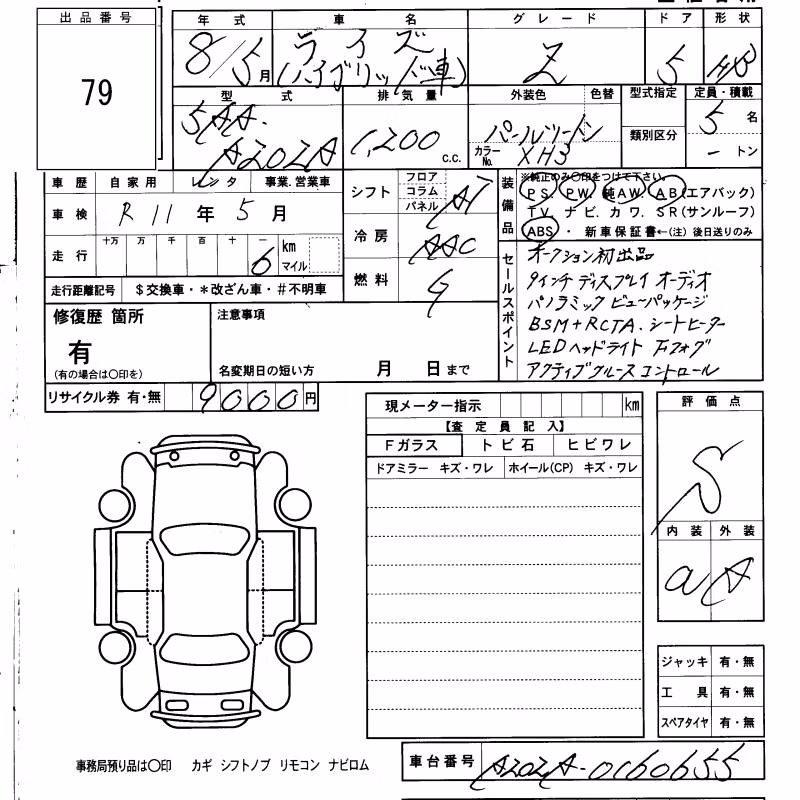 出品番号
79
年式
8/5月
車名
ライズ
(ハイブリッド車)
グレード
Z
ドア
5
形状
HB
型式
5AA-
A202A
排気量
1,200
c.c.
外装色 色替
パールツートン
カラーNo. XH3
型式指定
類別区分
定員・積載
5名
-トン
車歴 自家用 レンタ 事業.営業車
車検 R11年5月
走行 十万 万 千 百 十 一
6 km マイル
走行距離記号 $交換車・*改ざん車・#不明車
シフト フロア コラム パネル AT
冷房 AAC
燃料 G
装備品
※純正のみ〇印をつけて下さい。
PS. PW. 純AW. AB(エアバック)
TV. ナビ. カワ. SR(サンルーフ)
ABS ・ 新車保証書←(注) 後日送りのみ
セールスポイント
オークション初出品
9インチディスプレイオーディオ
パノラミックビューパッケージ
BSM+RCTA. シートヒーター
LEDヘッドライト Fフォグ
アクティブクルーズコントロール
修復歴 箇所
有
(有の場合は〇印を)
注意事項
名変期日の短い方 月 日まで
リサイクル券 有・無 9000円
現メーター指示 km
【査定員記入】
Fガラス トビ石 ヒビワレ
ドアミラー キズ・ワレ ホイール(CP) キズ・ワレ
評価点
S
内装 外装
a A
ジャッキ 有・無
工具 有・無
スペアタイヤ 有・無
事務局預り品は〇印 カギ シフトノブ リモコン ナビロム
車台番号 A202A-0160655